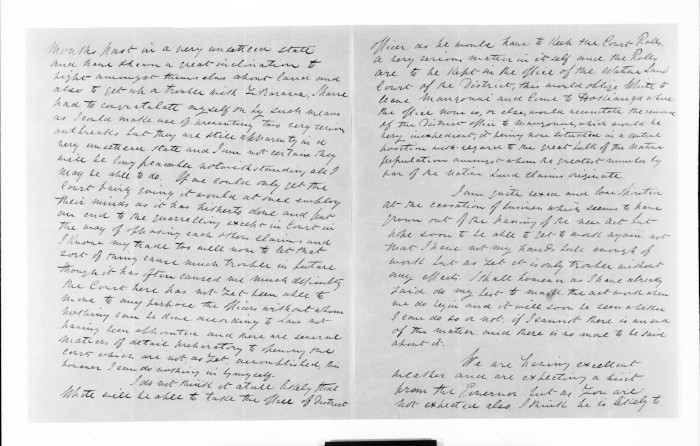 months past in a very unsettled state
and have shewn a great inclination to
fight amongst themselves about land and
also to get up a trouble with Te Rarawa, I have
had to congratulate myself on by such means
as I could make use of preventing two very serious
outbreaks but they are still apparently in a
very unsettled state and I am not certain they
will be long peaceable notwithstanding all I
may be able to do. If we could only get the
Court fairly going it would at once employ
their minds as it has hitherto done and put
an end to the quarrelling except in Court in
the way of opposing each others claims and
I know my trade too well now to let that
sort of thing cause much trouble in future
though it has often caused me much difficulty.
The Court here has not yet been able to
move to any purpose the officers without whom
nothing can be done according to law not
having been appointed and there are several
matters of detail preparatory to opening the
court which are not as yet accomplished, this
however I can do nothing in by myself.
I do not think it at all likely that
White will be able to take the office of District
officer as he would have to keep the Court Rolls
a very serious matter in itself and the Rolls
are to be kept in the office of the Native Land
Court of the District, this would oblige White to
leave Mangonui and come to Hokianga where
the office now is, or else, would necessitate the removal
of the District office to Mangonui, which would be
very inexpedient, it being now situated in a central
position with regard to the great bulk of the Native
population amongst whom the greatest number by
far of the Native land claims originate.
I am quite vexed and low spirited
at the cessation of business which seems to have
grown out of the passing of the new Act but
hope soon to be able to get to work again not
that I have not my hands full enough of
work but as yet it is only trouble without
any effect. I shall however as I have already
said do my best to make the act work when
we do begin and it will soon be seen whether
I can do so or not, if I cannot there is an end
of the matter and there is no more to be said
about it.
We are having excellent
weather and are expecting a visit
from the Governor but as you are
not expected also I think he is likely to